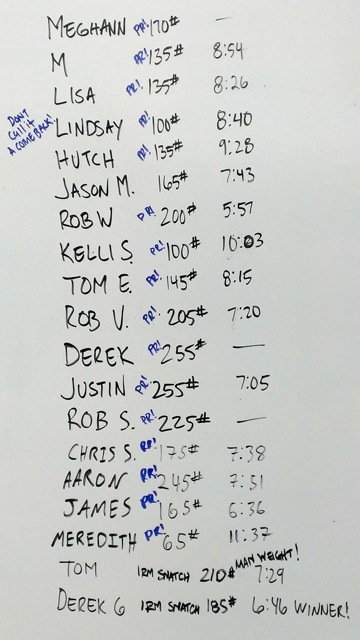 MEGHANN PR! 170# —
M PR! 135# 8:54
LISA PR! 135# 8:26
DON'T CALL IT A COMEBACK!
LINDSAY PR! 100# 8:40
HUTCH PR! 135# 9:28
JASON M. 165# 7:43
ROB W PR! 200# 5:57
KELLI S. PR! 100# 10:03
TOM E. PR! 145# 8:15
ROB V. PR! 205# 7:20
DEREK PR! 255# —
JUSTIN PR! 255# 7:05
ROB S. PR! 225# —
CHRIS S. PR! 175# 7:38
AARON PR! 245# 7:51
JAMES PR! 165# 6:36
MEREDITH PR! 65# 11:37
TOM 1RM SNATCH 210# MAN WEIGHT! 7:29
DEREK G 1RM SNATCH 185# 6:46 WINNER!